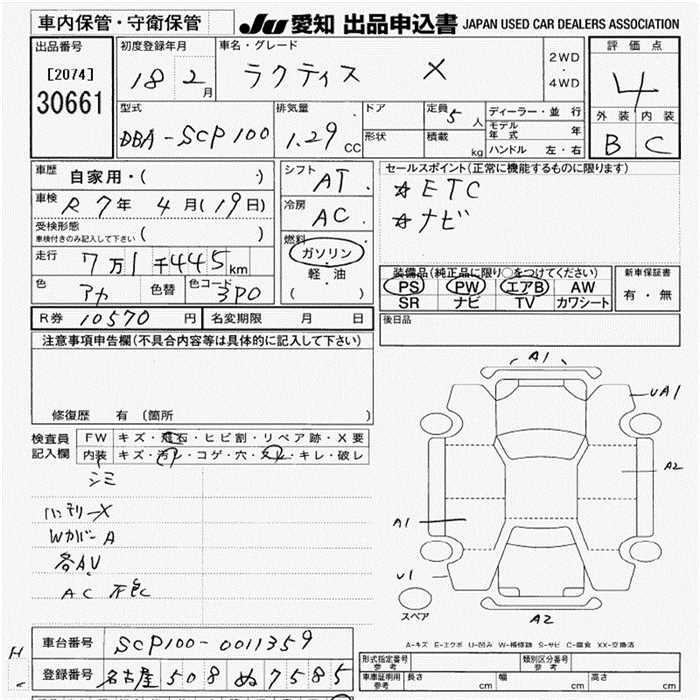 車内保管・守衛保管
JU 愛知 出品申込書 JAPAN USED CAR DEALERS ASSOCIATION
出品番号
[2074]
30661
初度登録年月
18 2月
車名・グレード
ラクティス X
2WD
・
4WD
評価点
4
外装 内装
B C
型式
DBA-SCP100
排気量
1.29 CC
ドア
形状
定員 5人
積載 kg
ディーラー・並行
モデル年式 年
ハンドル 左・右
車歴 自家用・( )
車検 R7年 4月(19日)
受検形態
車検付きのみ記入して下さい ( )
走行 7万1千445km
色 アカ 色替 色コード 3P0
シフト AT
冷房 AC
燃料
ガソリン
軽・油
( )
セールスポイント(正常に機能するものに限ります)
☆ETC
☆ナビ
装備品(純正品に限り○をつけてください)
PS PW エアB AW
SR ナビ TV カワシート
新車保証書
有・無
R券 10570円 名変期限 月 日
後日品
注意事項申告欄(不具合内容等は具体的に記入して下さい)
修復歴 有 (箇所 )
検査員記入欄
FW キズ・飛石・ヒビ割・リペア跡・X要
内装 キズ・汚レ・コゲ・穴・スレ・キレ・破レ
シミ
バッテリーX
WカバーA
各AU
AC 不良
A1
UA1
A2
A1
U1
スペア
A2
A-キズ E-エクボ U-凹み W-補修跡 S-サビ C-腐食 XX-交換済
車台番号 SCP100-0011359
登録番号 名古屋 508 ぬ 7585
H
型式指定番号 参考
類別区分番号 参考
車庫証明用 参考 長さ cm 幅 cm 高さ cm